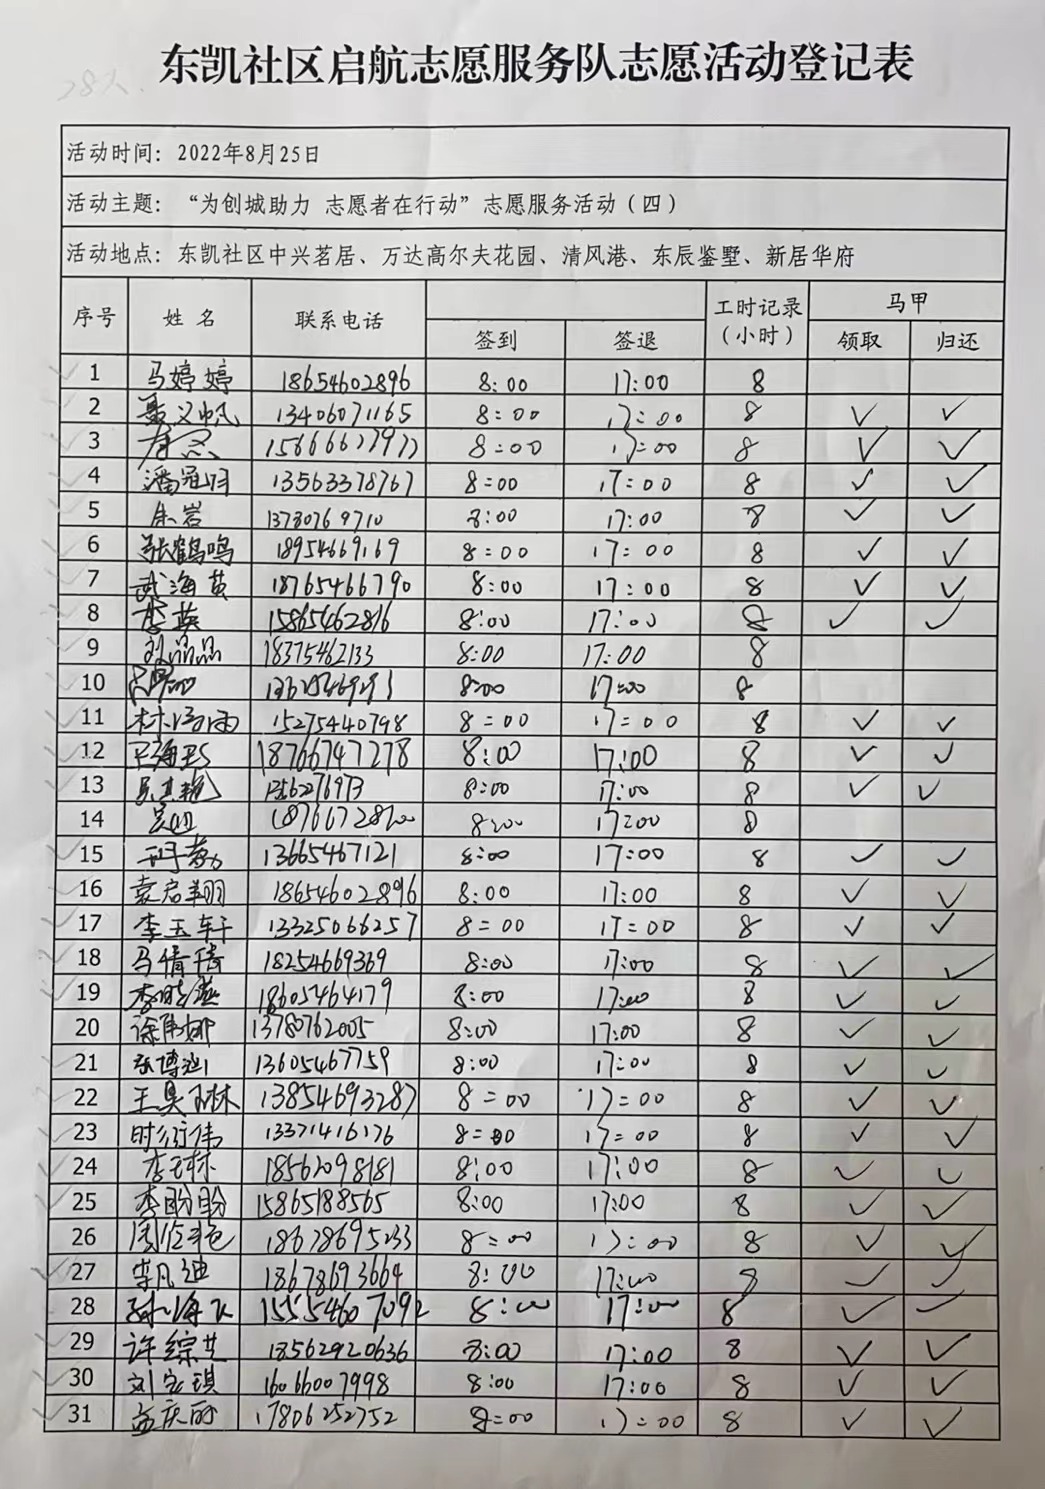 东凯社区启航志愿服务队志愿活动登记表
28人.
活动时间：2022年8月25日
活动主题：“为创城助力 志愿者在行动”志愿服务活动（四）
活动地点：东凯社区中兴茗居、万达高尔夫花园、清风港、东辰鉴墅、新居华府
序号 姓名 联系电话 签到 签退 工时记录（小时） 马甲 领取 归还
1 马婷婷 18654602896 8:00 17:00 8
2 13406071165 8:00 17:00 8 ✓ ✓
3 8:00 17:00 8 ✓ ✓
4 13563378767 8:00 17:00 8 ✓ ✓
5 13780769710 8:00 17:00 8 ✓ ✓
6 张鹤鸣 18954669169 8:00 17:00 8 ✓ ✓
7 武海英 18765466790 8:00 17:00 8 ✓ ✓
8 李英 15865462816 8:00 17:00 8 ✓ ✓
9 刘晶晶 18375462133 8:00 17:00 8
10 8:00 17:00 8
11 15275440798 8:00 17:00 8 ✓ ✓
12 18766747278 8:00 17:00 8 ✓ ✓
13 8:00 17:00 8 ✓ ✓
14 8:00 17:00 8
15 13665467121 8:00 17:00 8 ✓ ✓
16 袁启翔 18654602896 8:00 17:00 8 ✓ ✓
17 李玉轩 13325066257 8:00 17:00 8 ✓ ✓
18 马倩倩 18254669369 8:00 17:00 8 ✓ ✓
19 李晓燕 18605464179 8:00 17:00 8 ✓ ✓
20 徐伟娜 13780762005 8:00 17:00 8 ✓ ✓
21 13605467759 8:00 17:00 8 ✓ ✓
22 王昊琳 13854693287 8:00 17:00 8 ✓ ✓
23 时衍伟 13371416176 8:00 17:00 8 ✓ ✓
24 18562098181 8:00 17:00 8 ✓ ✓
25 李盼盼 15865188565 8:00 17:00 8 ✓ ✓
26 18678695233 8:00 17:00 8 ✓ ✓
27 李凡迪 18678693664 8:00 17:00 8 ✓ ✓
28 15554607092 8:00 17:00 8 ✓ ✓
29 许综芝 18562920636 8:00 17:00 8 ✓ ✓
30 刘宝琪 16066007998 8:00 17:00 8 ✓ ✓
31 孟庆丽 17806252752 8:00 17:00 8 ✓ ✓